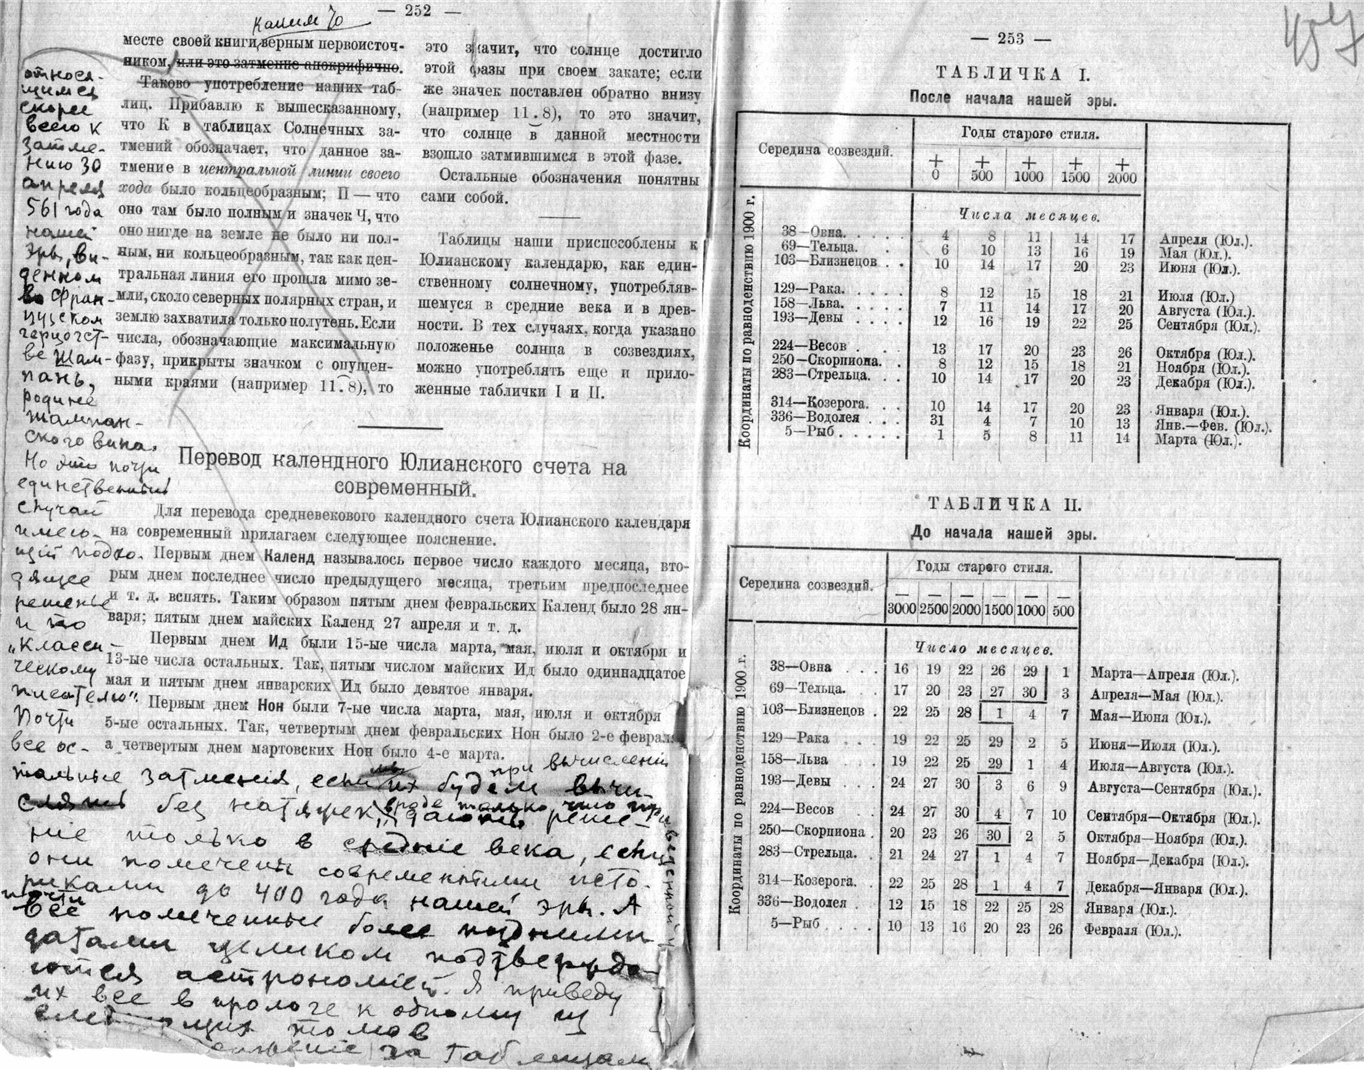 — 252 —
каким то
месте своей книги, верным первоисточ-
ником, или это затмение апокрифично.
Таково употребление наших таб-
лиц. Прибавлю к вышесказанному,
что К в таблицах Солнечных за-
тмений обозначает, что данное за-
тмение в центральной линии своего
хода было кольцеобразным; П — что
оно там было полным и значек Ч, что
оно нигде на земле не было ни пол-
ным, ни кольцеобразным, так как цен-
тральная линия его прошла мимо зе-
мли, около северных полярных стран, и
землю захватила только полутень. Если
числа, обозначающие максимальную
фазу, прикрыты значком с опущен-
ными краями (например 11.8), то
это значит, что солнце достигло
этой фазы при своем закате; если
же значек поставлен обратно внизу
(например 11.8), то это значит,
что солнце в данной местности
взошло затмившимся в этой фазе.
Остальные обозначения понятны
сами собой.
Таблицы наши приспособлены к
Юлианскому календарю, как един-
ственному солнечному, употребляв-
шемуся в средние века и в древ-
ности. В тех случаях, когда указано
положенье солнца в созвездиях,
можно употреблять еще и прило-
женные таблички I и II.
относя-
щимся
скорее
всего к
затме-
нию 30
апреля
561 года
нашей
эры, ви-
денном
во Фран-
цузском
герцогст-
ве Шам-
пань,
родине
шампан-
ского вина.
Но это почти
единственный
случай
имею-
щий подхо-
дящее
решенье
и то
„класси-
ческому
писателю".
Почти
все ос-
Перевод календного Юлианского счета на
современный.
Для перевода средневекового календного счета Юлианского календаря
на современный прилагаем следующее пояснение.
Первым днем Календ называлось первое число каждого месяца, вто-
рым днем последнее число предыдущего месяца, третьим предпоследнее
и т. д. вспять. Таким образом пятым днем февральских Календ было 28 ян-
варя; пятым днем майских Календ 27 апреля и т. д.
Первым днем Ид были 15-ые числа марта, мая, июля и октября и
13-ые числа остальных. Так, пятым числом майских Ид было одиннадцатое
мая и пятым днем январских Ид было девятое января.
Первым днем Нон были 7-ые числа марта, мая, июля и октября
5-ые остальных. Так, четвертым днем февральских Нон было 2-е феврал
а четвертым днем мартовских Нон было 4-е марта.
при вычислении
тальные затмения, если их будем вычи-
слять без натяжек, решe-
ние только в средние века, если
они помечены современными исто-
риками до 400 года нашей эры. А
почти
все помеченные более поздними
датами целиком подтвержда-
ются астрономией. Я приведу
их все в прологе к одному из
томов
за таблицами
— 253 —
ТАБЛИЧКА I.
После начала нашей эры.
Середина созвездий. Годы старого стиля.
+ 0 + 500 + 1000 + 1500 + 2000
Координаты по равноденствию 1900 г.
Числа месяцев.
38—Овна. 4 8 11 14 17 Апреля (Юл.).
69—Тельца. 6 10 13 16 19 Мая (Юл.).
103—Близнецов 10 14 17 20 23 Июня (Юл.).
129—Рака. 8 12 15 18 21 Июля (Юл.)
158—Льва. 7 11 14 17 20 Августа (Юл.).
193—Девы 12 16 19 22 25 Сентября (Юл.).
224—Весов 13 17 20 23 26 Октября (Юл.).
250—Скорпиона. 8 12 15 18 21 Ноября (Юл.).
283—Стрельца. 10 14 17 20 23 Декабря (Юл.).
314—Козерога. 10 14 17 20 23 Января (Юл.).
336—Водолея 31 4 7 10 13 Янв.—Фев. (Юл.).
5—Рыб 1 5 8 11 14 Марта (Юл.).
ТАБЛИЧКА II.
До начала нашей эры.
Середина созвездий. Годы старого стиля.
— 3000 — 2500 — 2000 — 1500 — 1000 — 500
Координаты по равноденствию 1900 г.
Число месяцев.
38—Овна 16 19 22 26 29 1 Марта—Апреля (Юл.).
69—Тельца. 17 20 23 27 30 3 Апреля—Мая (Юл.).
103—Близнецов 22 25 28 1 4 7 Мая—Июня (Юл.).
129—Рака 19 22 25 29 2 5 Июня—Июля (Юл.).
158—Льва 19 22 25 29 1 4 Июля—Августа (Юл.).
193—Девы 24 27 30 3 6 9 Августа—Сентября (Юл.).
224—Весов 24 27 30 4 7 10 Сентября—Октября (Юл.).
250—Скорпиона 20 23 26 30 2 5 Октября—Ноября (Юл.).
283—Стрельца. 21 24 27 1 4 7 Ноября—Декабря (Юл.).
314—Козерога. 22 25 28 1 4 7 Декабря—Января (Юл.).
336—Водолея 12 15 18 22 25 28 Января (Юл.).
5—Рыб 10 13 16 20 23 26 Февраля (Юл.).